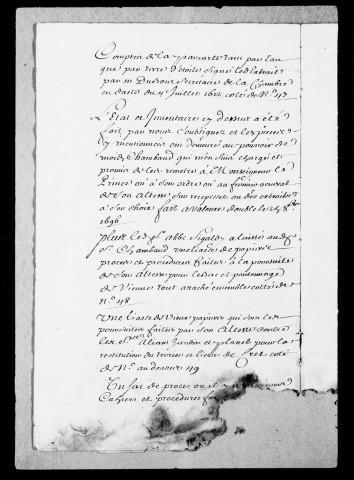 Comptes de la
que par terre d'Etoile signé led. extrait
par m Dubour Secretaire de la Chambre
en datte du 4e Juillet 1612 cotté de No 47
L'Etat et Inventaire cy dessus a été
fait par nous soubsignez et les pieces
y mentionnées ont demeuré au pouvoir de
moid. Chambaud qui m'en suis chargé et
promis de les remetre à Monseigneur le
Prince ou à son ordre ou au fermier general
de son Altesse sur recepisses ou des extraits
à son choix fait a Valence double le 8bre
1696
plus led. sr. abbé Sigalo a laissé aud.
sr. Chambaud une liasse de papiers
proces et procedures faites à la poursuite
de son Altesse pour le bac et pontonnage
de Vienne tout attaché ensemble cotté de
No. 48
Une liasse de vieux papiers qui sont les
poursuites faites par son Altesse contre
les srs. Alian Jardin et planel pour la
restitution du terrier et lieves de Crest cotté
de No. au dessus 49
Un sac de proces ou il y a plusieurs
Cahiers et procedures